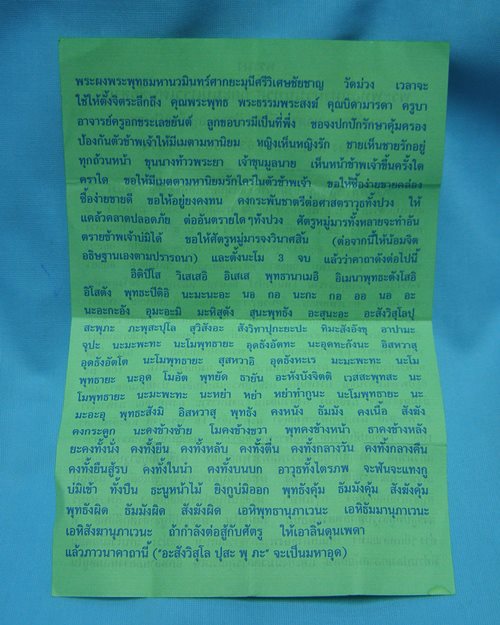 พระผงพระพุทธมหานวมินทร์ศากยะมุนีศรีวิเศษชัยชาญ วัดม่วง เวลาจะ
ใช้ให้ตั้งจิตระลึกถึง คุณพระพุทธ พระธรรมพระสงฆ์ คุณบิดามารดา ครูบา
อาจารย์ครูอกขระเลขยันต์ ลูกขอบารมีเป็นที่พึ่ง ขอจงปกปักรักษาคุ้มครอง
ป้องกันตัวข้าพเจ้าให้มีเมตามหานิยม หญิงเห็นหญิงรัก ชายเห็นชายรักอยู่
ทุกถ้วนหน้า ขุนนางท้าวพระยา เจ้าขุนมูลนาย เห็นหน้าข้าพเจ้าขึ้นครั้งใด
คราใด ขอให้มีเมตตามหานิยมรักใคร่ในตัวข้าพเจ้า ขอให้ซื้อง่ายขายคล่อง
ซื้อง่ายขายดี ขอให้อยู่ยงคงทน คงกระพันชาตรีต่อศาสตราวุธทั้งปวง ให้
แคล้วคลาดปลอดภัย ต่ออันตรายใดๆทั้งปวง ศัตรูหมู่มารทั้งหลายจะทำอัน
ตรายข้าพเจ้าบ่มิได้ ขอให้ศัตรูหมู่มารจงวินาศสิ้น (ต่อจากนี้ให้น้อมจิต
อธิษฐานเองตามปรารถนา) และตั้งนะโม 3 จบ แล้วว่าคาถาดังต่อไปนี้
อิติปิโส วิเสเสอิ อิเสเส พุทธานาเมอิ อิเมนาพุทธะตังโสอิ
อิโสตัง พุทธะปิติอิ นะมะนะอะ นอ กอ นะกะ กอ ออ นอ อะ
นะอะกะอัง อุมะอะมิ มะหิสุตัง สุนะพุทธัง อะสุนะอะ อะสังวิสุโลปุ
สะพุภะ ภะพุสะปุโล สุวิสังอะ สังวิทาปุกะยะปะ ทิมะสังอังขุ อาปามะ
จุปะ นะมะพะทะ นะโมพุทธายะ อุดธังอัดทะ นะอุดทะกังนะ อิสหวาสุ
อุดธังอัดโต นะโมพุทธายะ สุสหวาอิ อุดธังหะเร มะมะพะทะ นะโม
พุทธายะ นะอุด โมอัด พุทยัด ธายัน อะหังบังจิตติ เวสสะพุทสะ นะ
โมพุทธายะ นะมะพะทะ นะหย่า หย่า หย่าทำกูนะ นะโมพุทธายะ นะ
มะอะอุ พุทธะสังมิ อิสหวาสุ พุทธัง คงหนัง ธัมมัง คงเนื้อ สังฆัง
คงกระดูก นะคงข้างซ้าย โมคงข้างขวา พุทคงข้างหน้า ธาคงข้างหลัง
ยะคงทั้งนั่ง คงทั้งยืน คงทั้งหลับ คงทั้งตื่น คงทั้งกลางวัน คงทั้งกลางคืน
คงทั้งยืนสู้รบ คงทั้งในน้ำ คงทั้งบนบก อาวุธทั้งไตรภพ จะฟันจะแทงกู
บ่มิเข้า ทั้งปืน ธะนูหน้าไม้ ยิงกูบ่มิออก พุทธังคุ้ม ธัมมังคุ้ม สังฆังคุ้ม
พุทธังผิด ธัมมังผิด สังฆังผิด เอหิพุทธานุภาเวนะ เอหิธัมมานุภาเวนะ
เอหิสังฆานุภาเวนะ ถ้ากำลังต่อสู้กับศัตรู ให้เอาลิ้นดุนเพดา
แล้วภาวนาคาถานี้ ("อะสังวิสุโล ปุสะ พุ ภะ" จะเป็นมหาอุด)